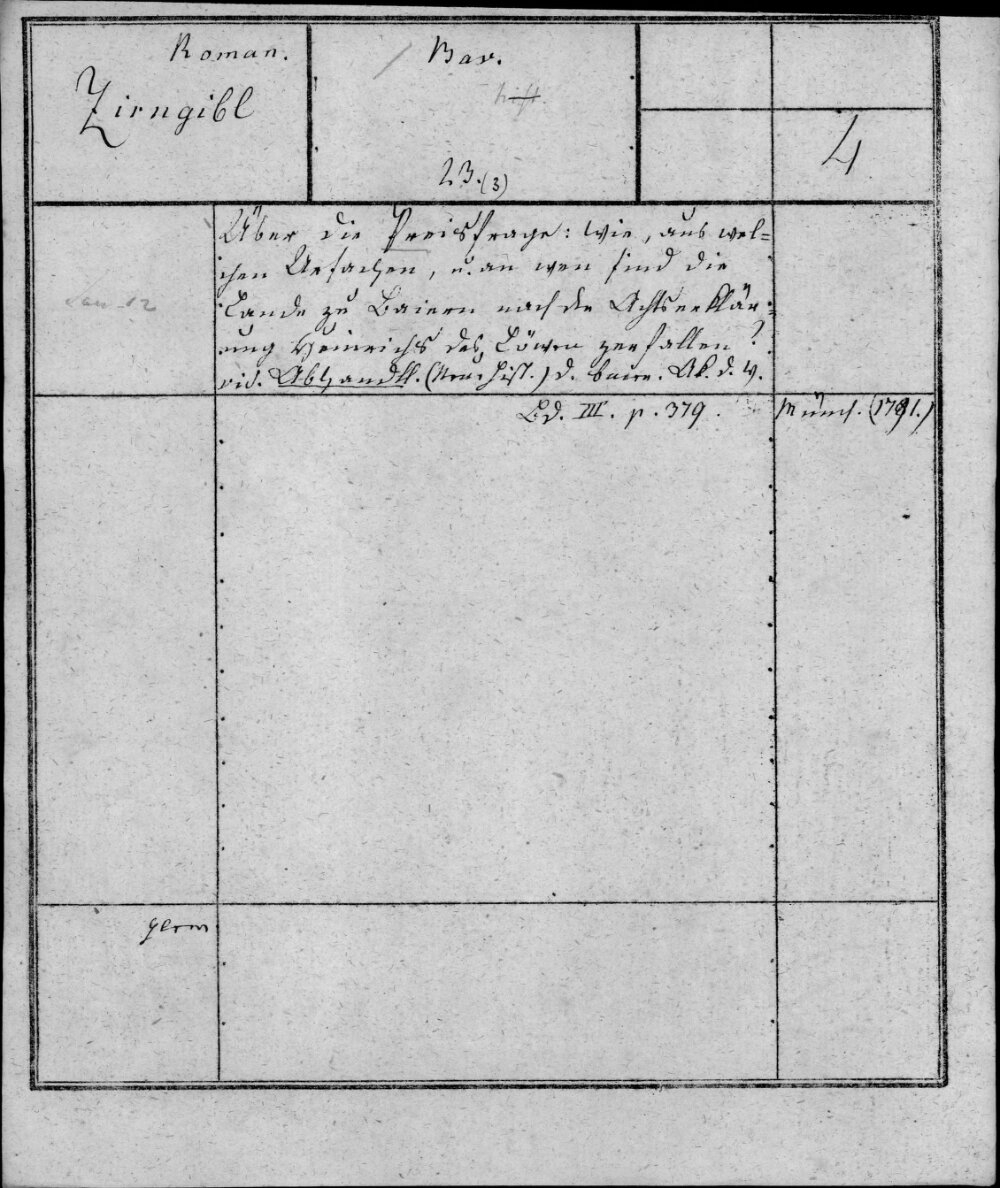 Roman.
Zirngibl
Bav.
hist
23.(3)
4
Über die Preisfrage: Wie, aus wel=
chen Ursachen, u. an wen sind die
Lande zu Baiern nach der Achtserklär=
ung Heinrichs des Löwen zerfallen?
vid. Abhandll. (Neue hist.) d. baier. Ak. d. W.
Bd. III. p. 379.
Münch. (1791.)
germ